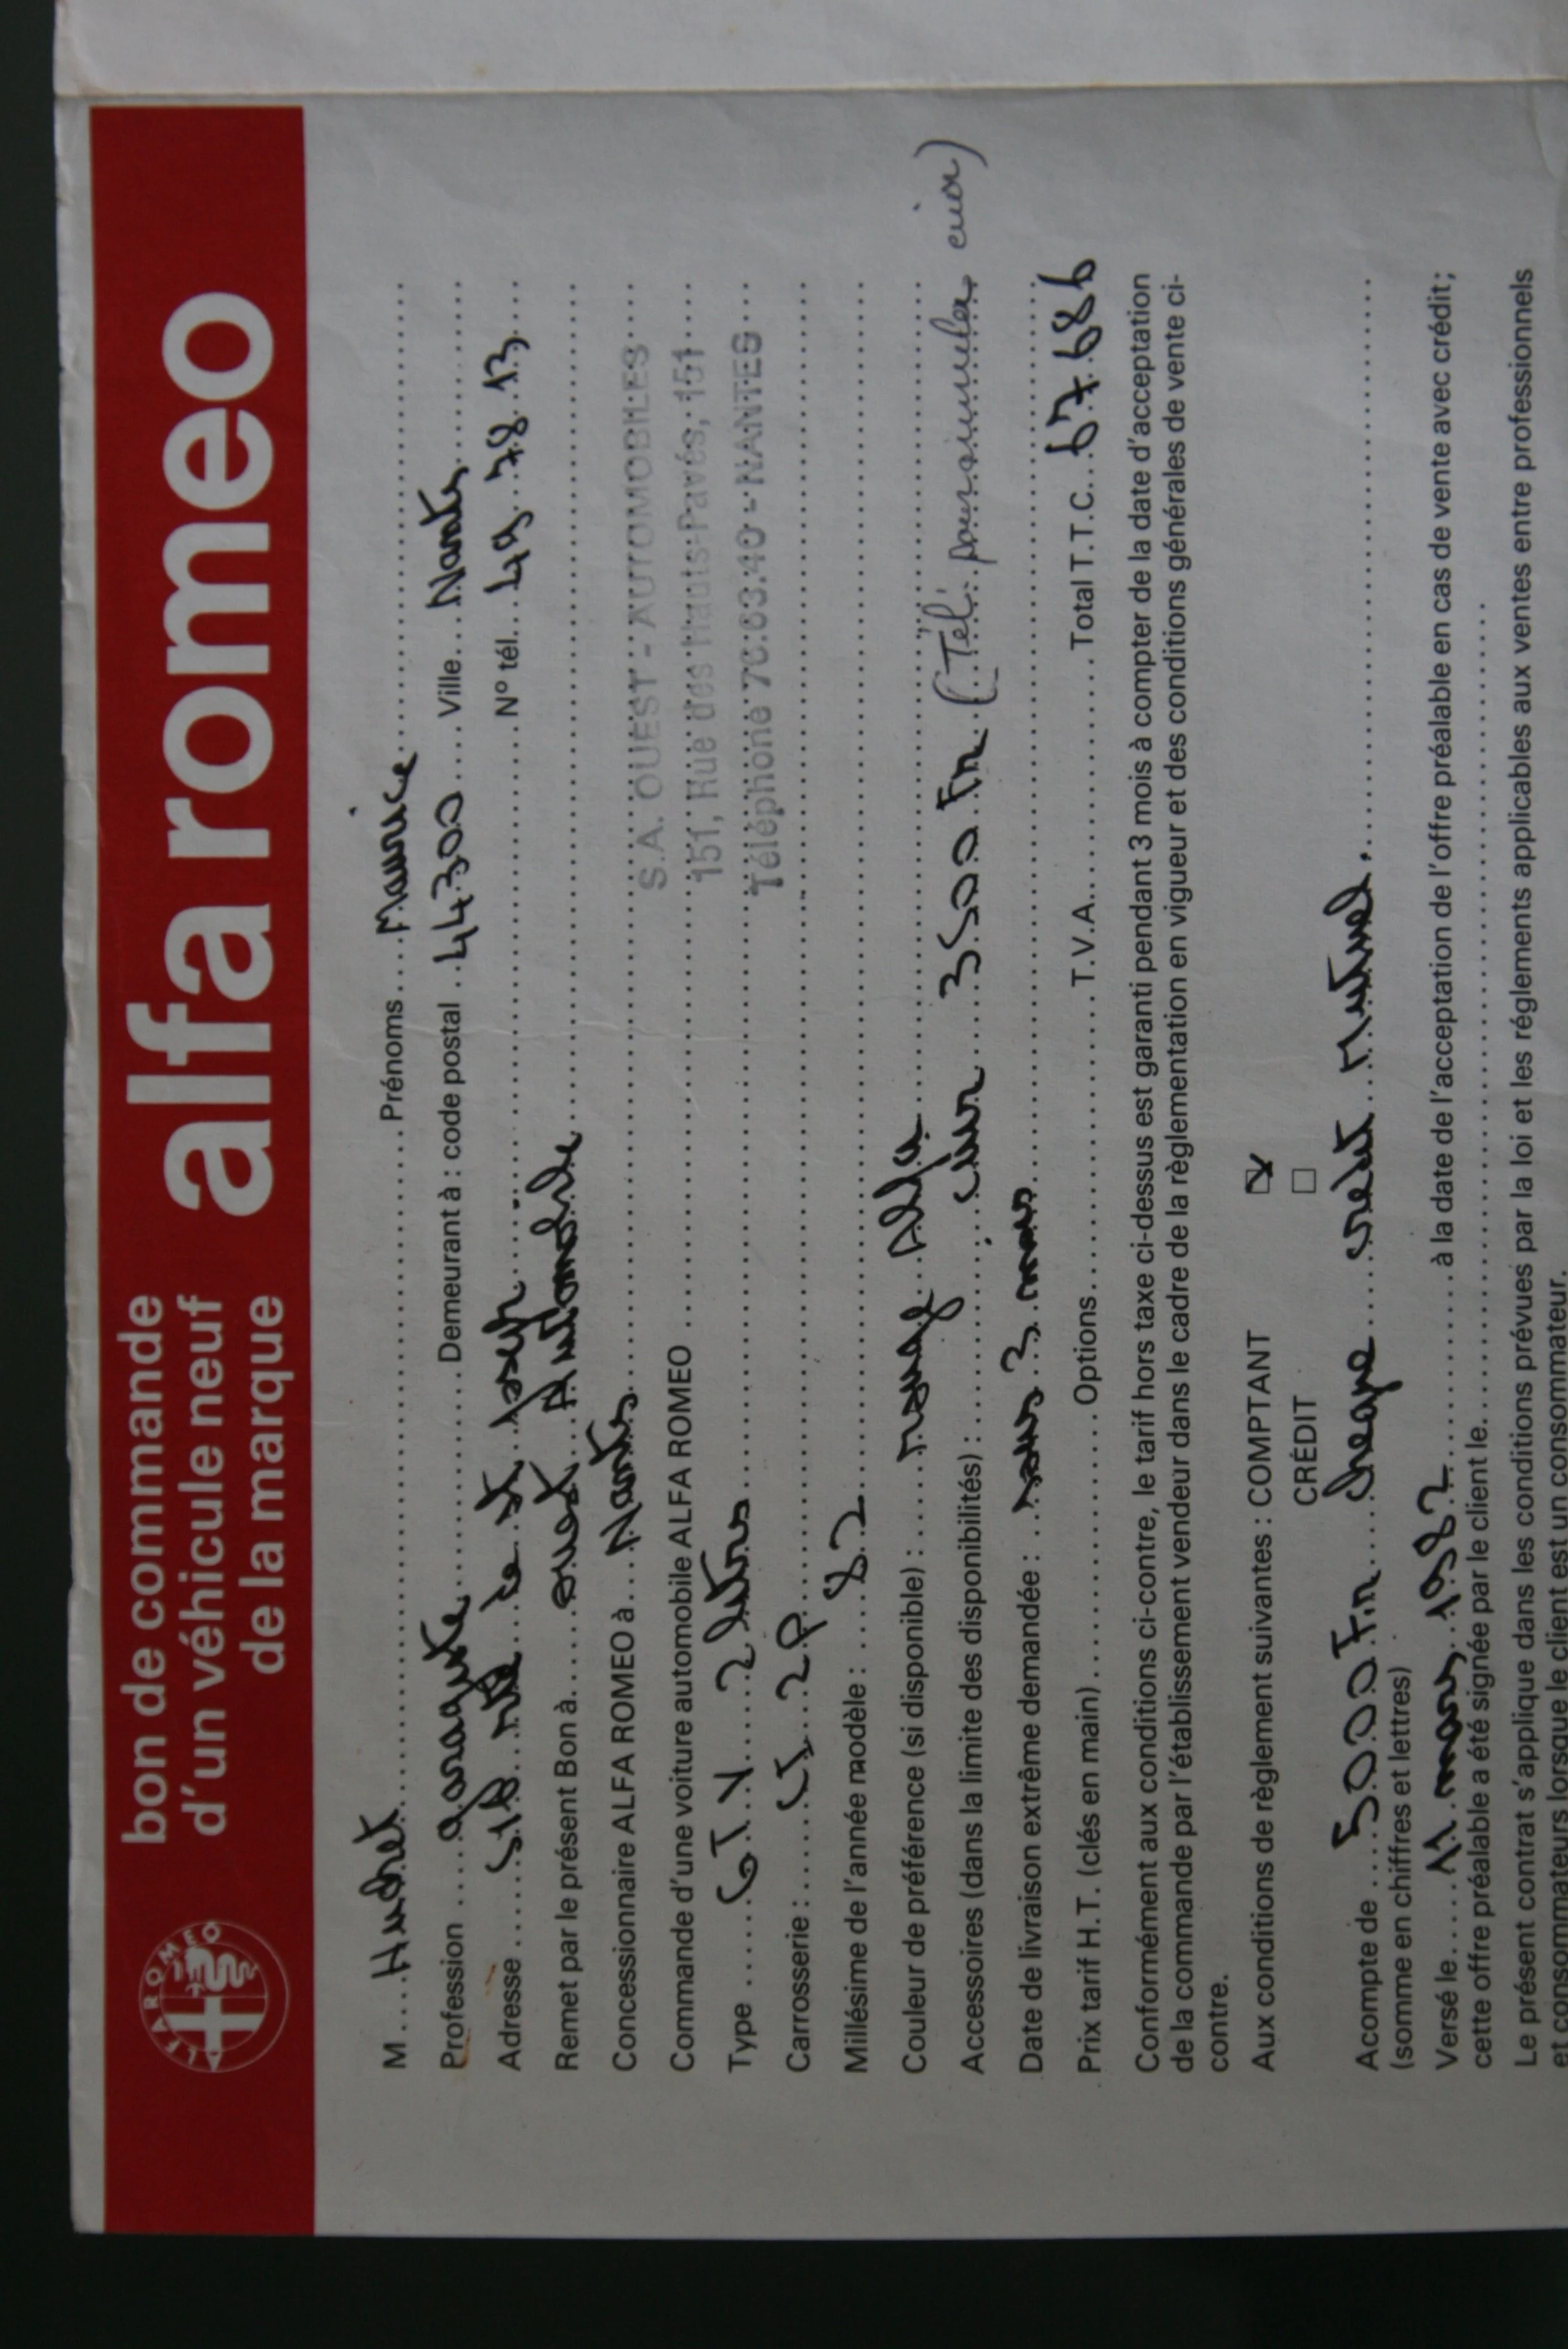 bon de commande
d'un véhicule neuf
de la marque
alfa romeo
ALFA ROMEO
M .... Hudret ........ Prénoms .... Maurice ........
Profession .... garagiste ........ Demeurant à : code postal .. 44300 .... Ville ... Nantes ........
Adresse ..... 518 rte de St Joseph ........ N° tél. .. 49 78 13 ....
Remet par le présent Bon à ..... ouest Automobile ........
Concessionnaire ALFA ROMEO à ... Nantes ........
S.A. OUEST - AUTOMOBILES
Commande d'une voiture automobile ALFA ROMEO ........
151, Rue des Hauts-Pavés, 151
Type ...... GTV 2 litres ........
Téléphone 76.63.40 - NANTES
Carrosserie : ..... CI 2P ........
Millésime de l'année modèle : .... 82 ........
Couleur de préférence (si disponible) : ..... rouge Alfa ........
Accessoires (dans la limite des disponibilités) : ........ cuir 3500 Frs (Tel.
Date de livraison extrême demandée : ... sous 3 mois ........
Prix tarif H.T. (clés en main) ........ Options ........ T.V.A. ........ Total T.T.C. .. 67 686
Conformément aux conditions ci-contre, le tarif hors taxe ci-dessus est garanti pendant 3 mois à compter de la date d'acceptation
de la commande par l'établissement vendeur dans le cadre de la règlementation en vigueur et des conditions générales de vente ci-
contre.
Aux conditions de règlement suivantes : COMPTANT ☑
CRÉDIT ☐
Acompte de .... 5000 Frs .... cheque .... credit Mutuel. ........
(somme en chiffres et lettres)
Versé le ..... 11 mars 1982 ........ à la date de l'acceptation de l'offre préalable en cas de vente avec crédit ;
cette offre préalable a été signée par le client le ........
Le présent contrat s'applique dans les conditions prévues par la loi et les réglements applicables aux ventes entre professionnels
et consommateurs lorsque le client est un consommateur.